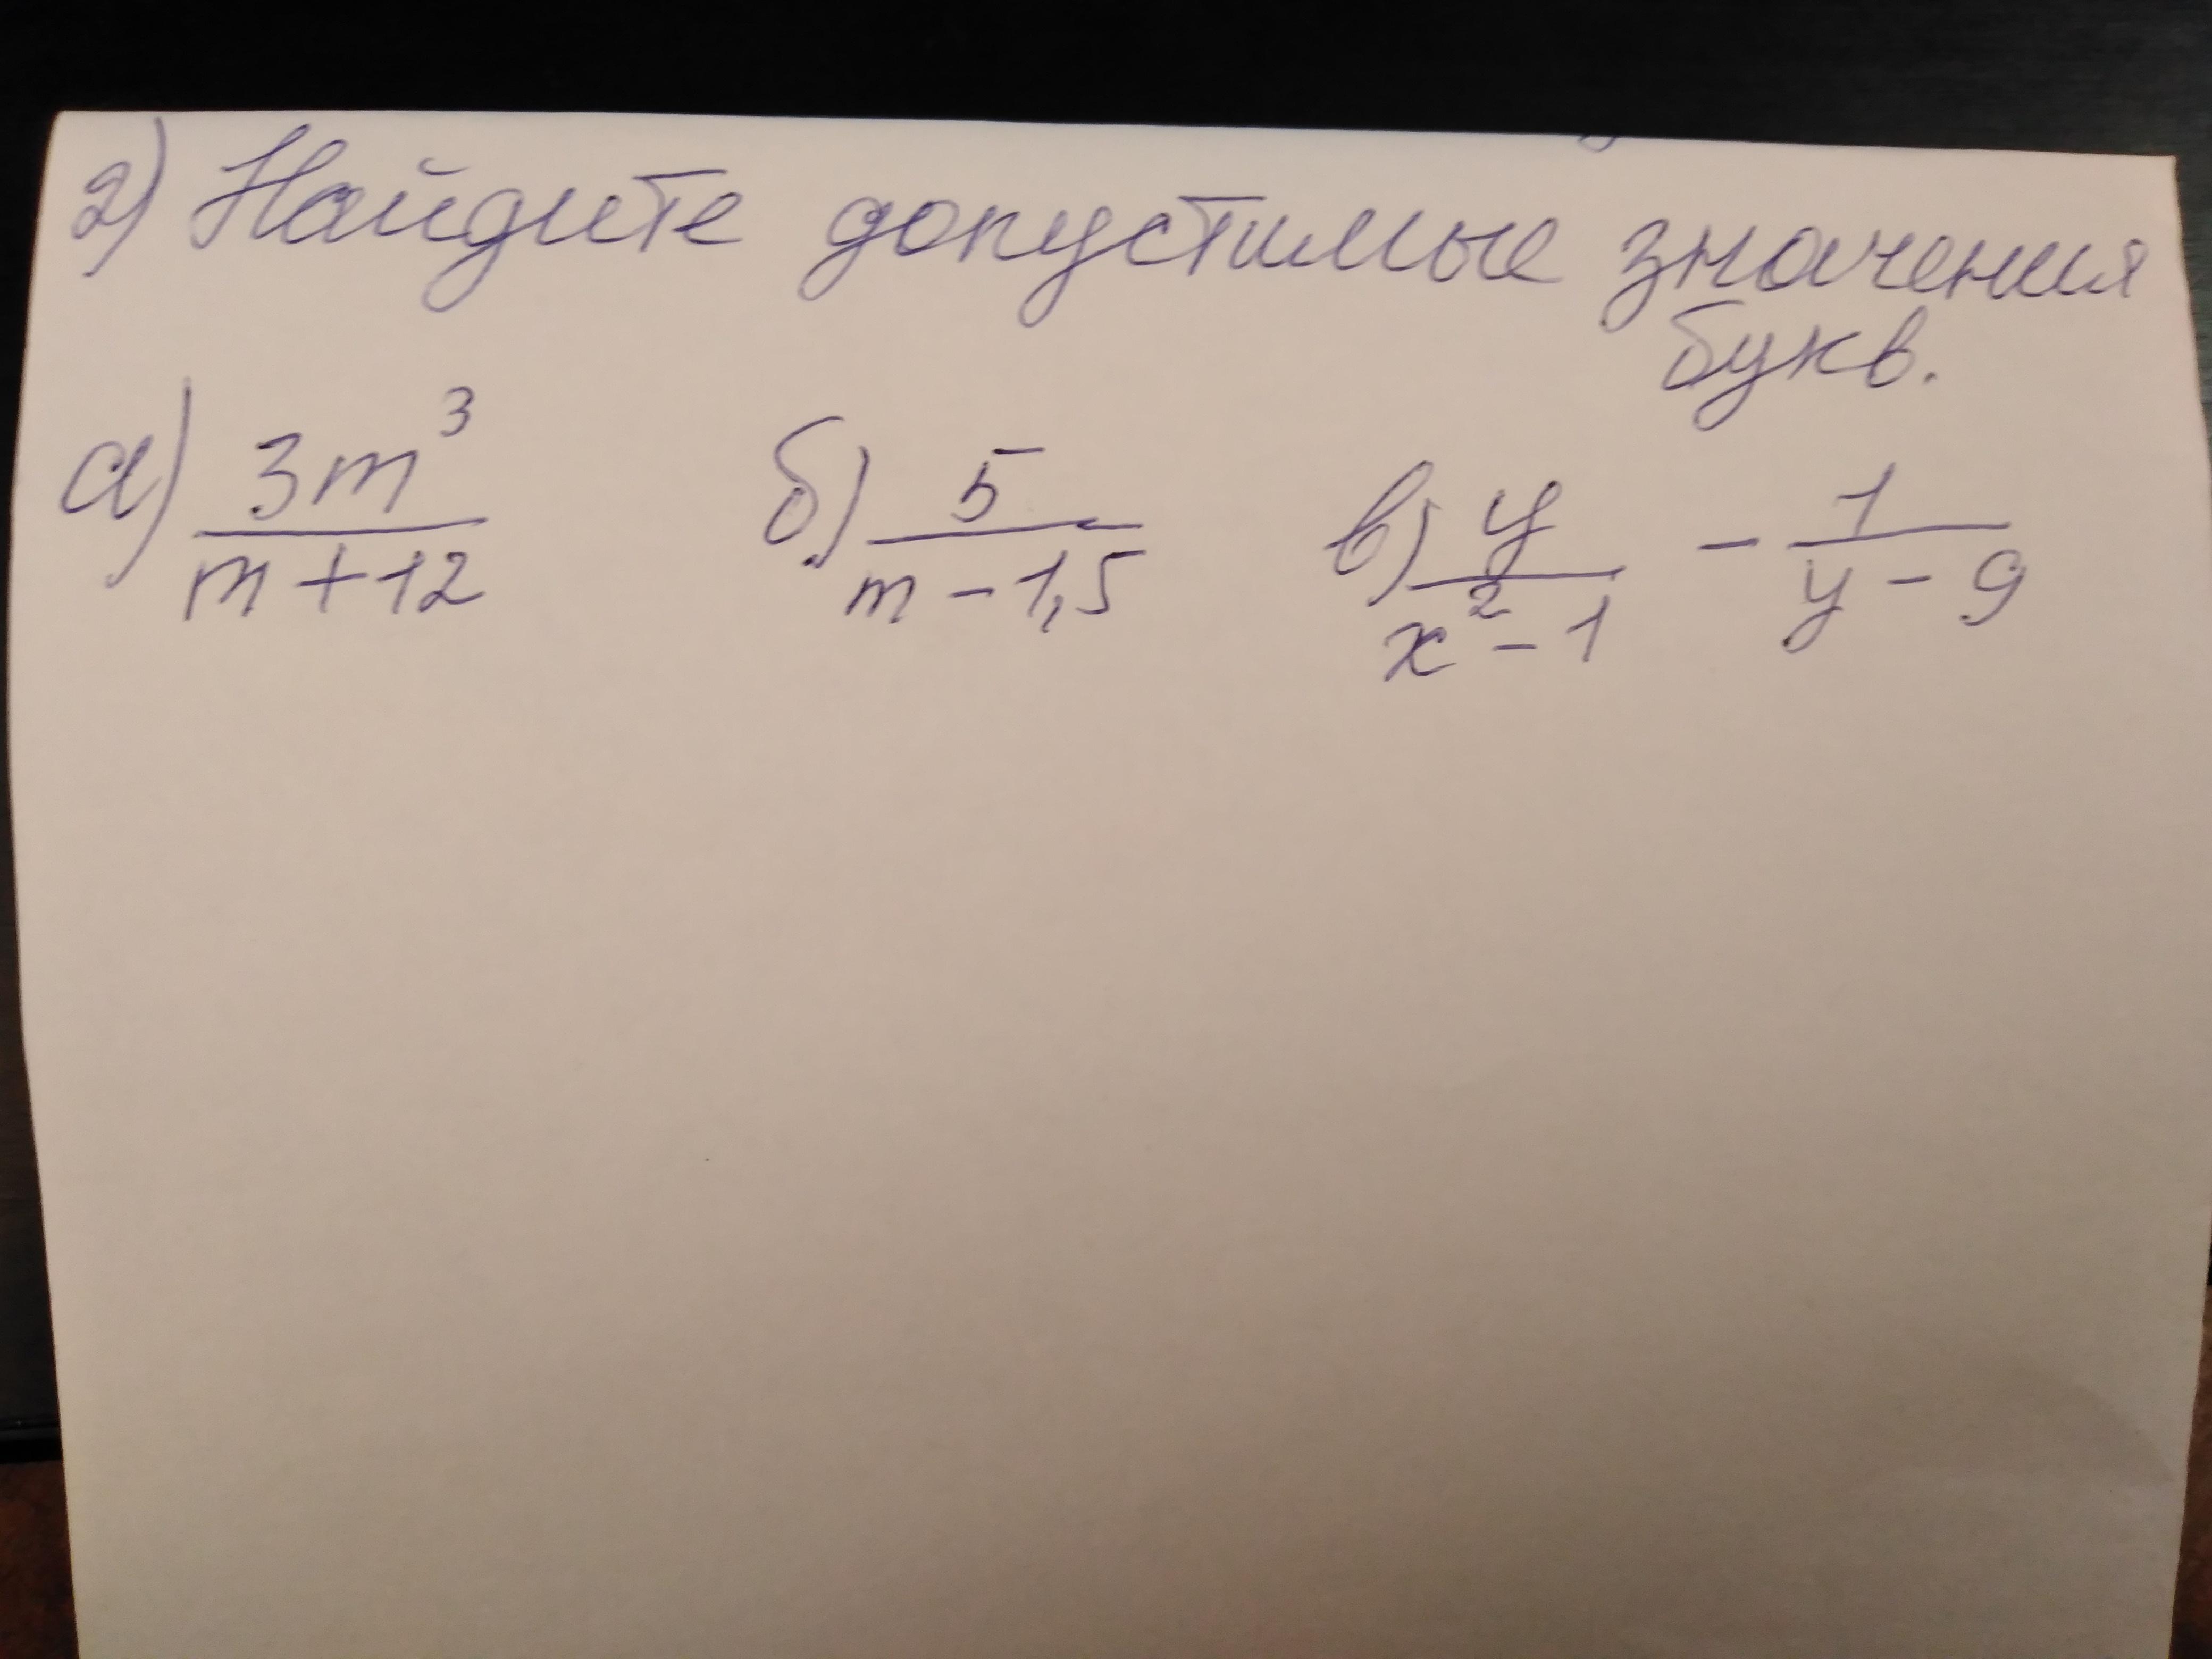 2) Найдите допустимые значения
букв.
а) 3m³/(m+12) б) 5/(m-1,5) в) y/(x²-1) - 1/(y-9)